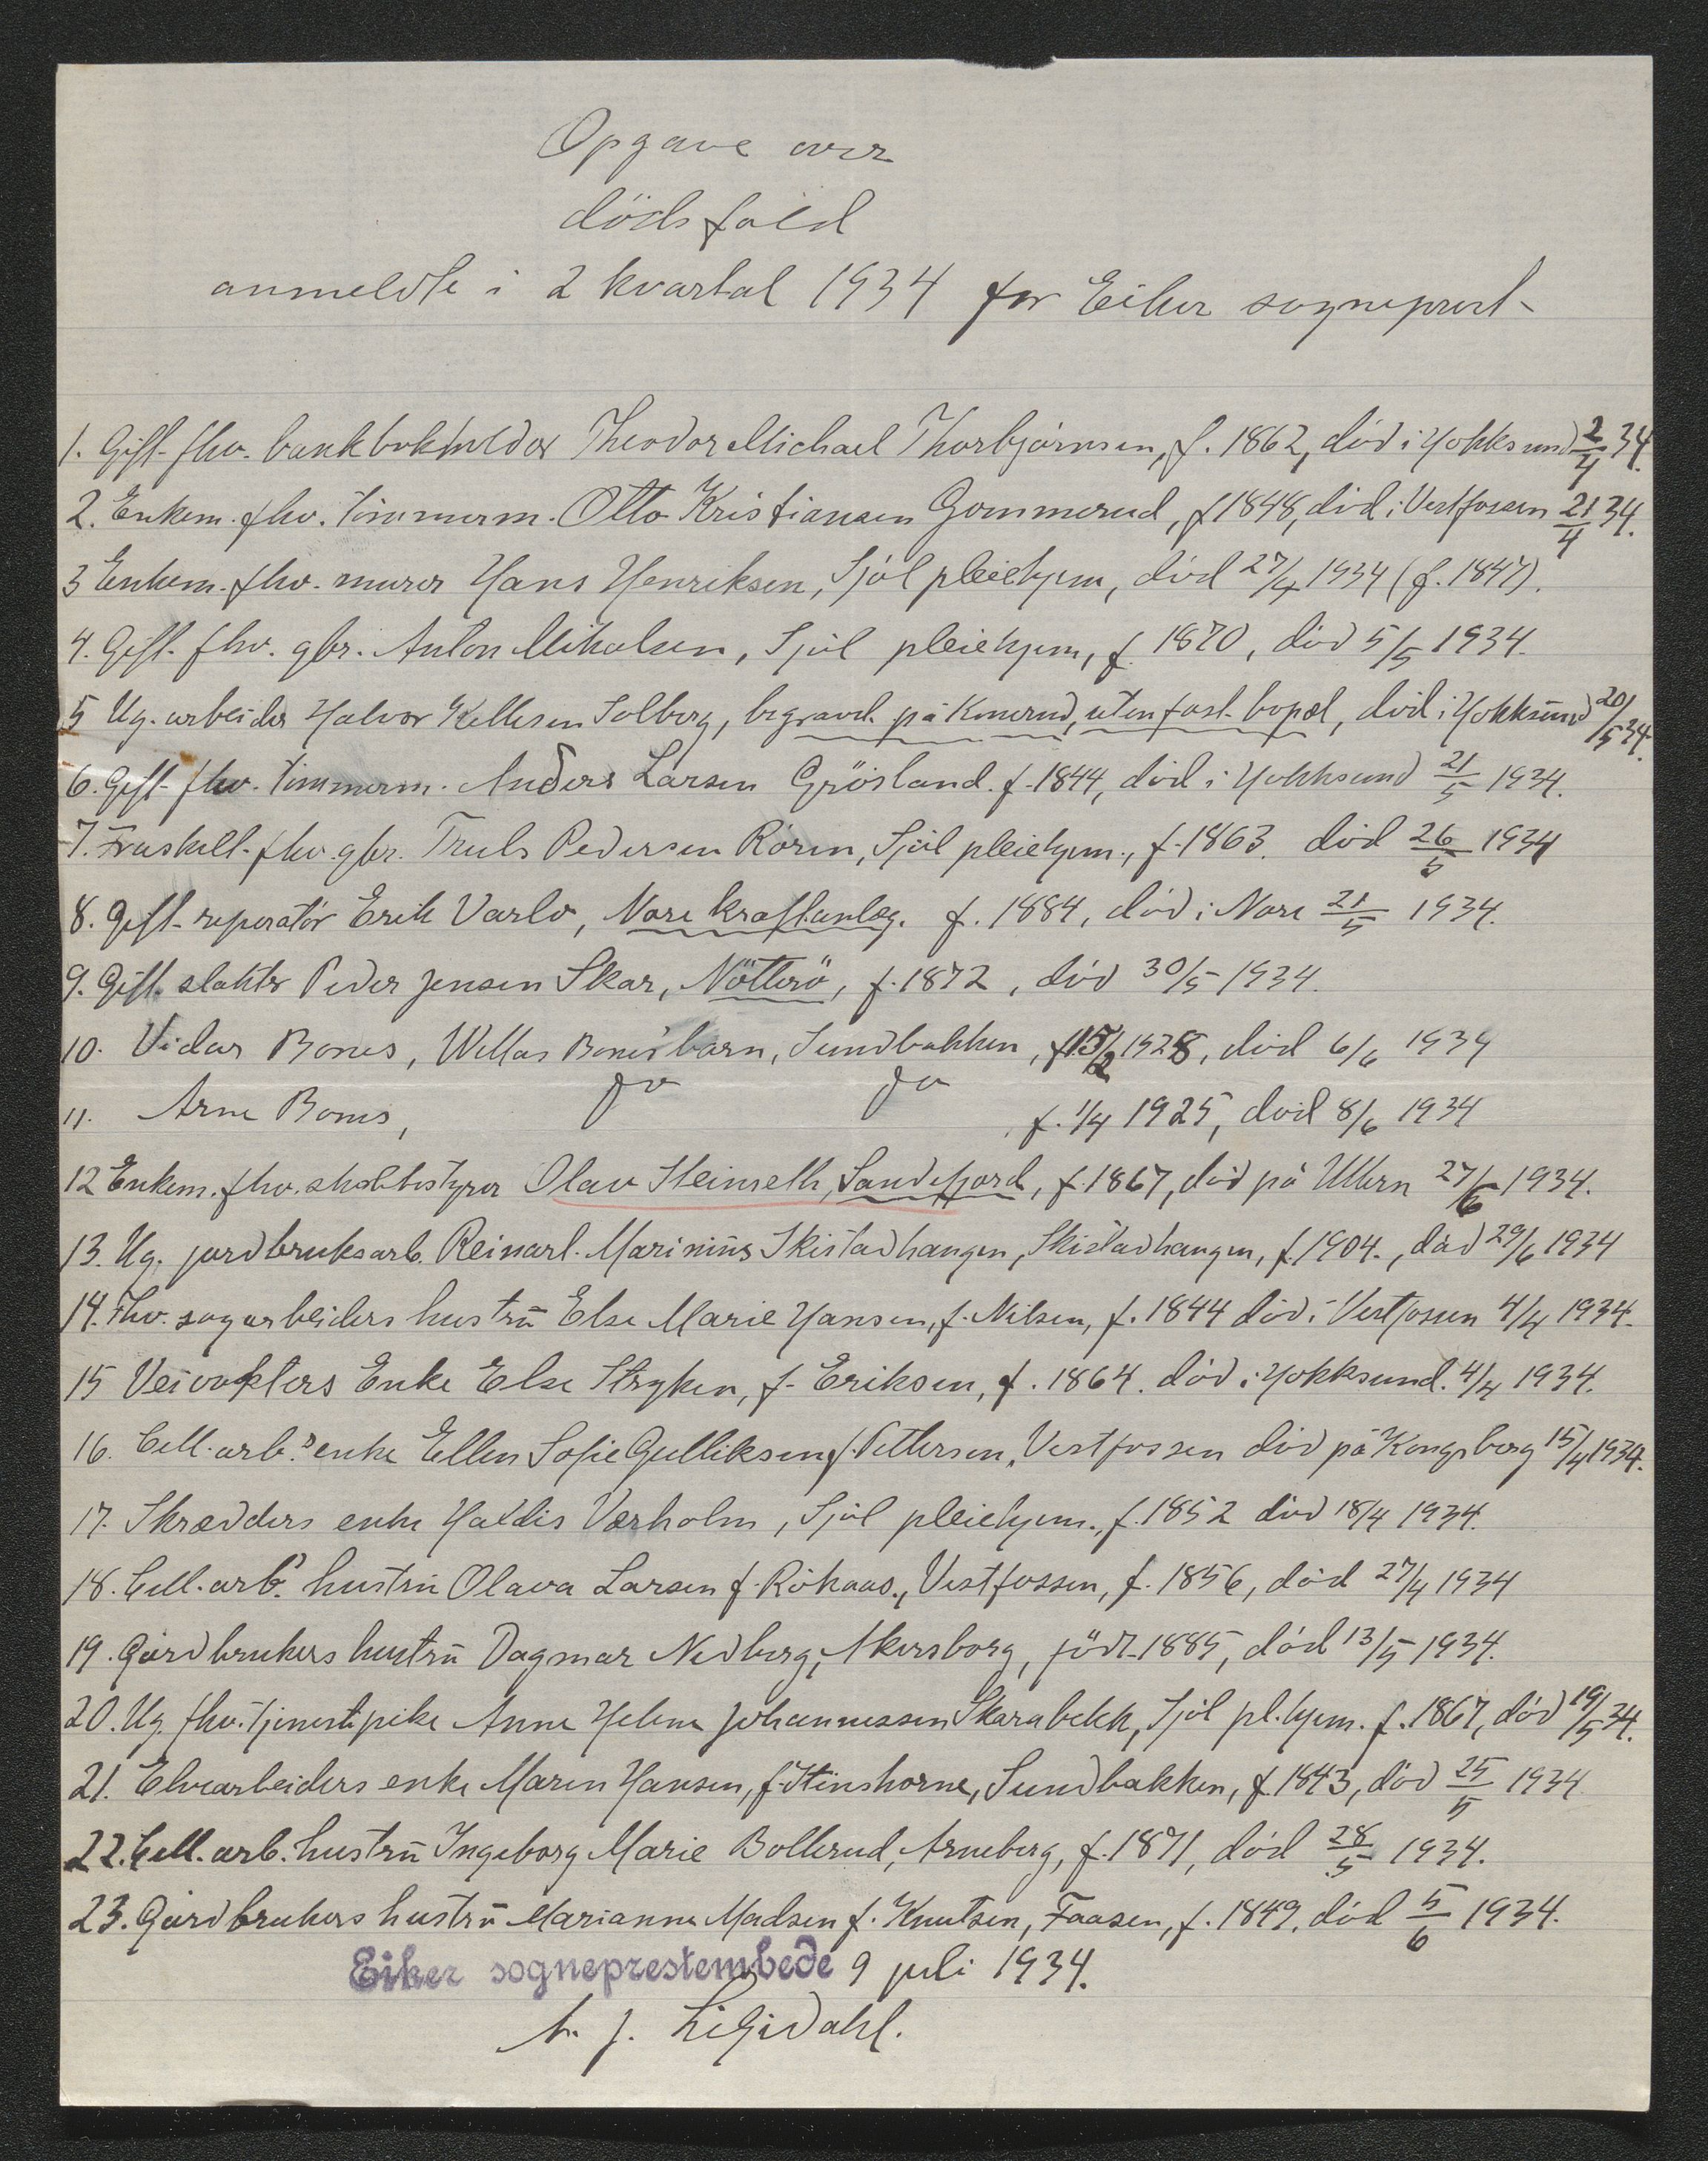 Opgave over
dödsfald
anmeldte i 2 kvartal 1934 for Eiker sogneprest
1. Gift fhv. bankbokholder Theodor Michael Thorbjørnsen, f. 1862, död i Hokksund 2/4 34.
2. Enkem. fhv. timmerm. Otto Kristiansen Gommerud, f 1848, död i Vestfossen 21/4 34.
3 Enkem. fhv. murer Hans Henriksen, Sjöl pleiehjem, död 27/4 1934 (f. 1847).
4. Gift fhv. gbr. Anton Mikalsen, Sjöl pleiehjem, f. 1870, död 5/5 1934.
5 Ug. arbeider Halvor Kittelsen Solberg, begravd på Knerud, uten fast bopæl, död i Hokksund 20/5 34.
6. Gift fhv. timmerm. Anders Larsen Grösland. f. 1844, död i Hokksund 21/5 1934.
7. Fraskilt fhv. gbr. Truls Pedersen Rören, Sjöl pleiehjem., f. 1863. död 26/5 1934
8. Gift reperatör Erik Varlo, Nore kraftanlæg. f. 1884, död i Nore 21/5 1934.
9. Gift slakter Peder Jensen Skar, Nötterö, f. 1872, död 30/5 1934.
10. Vidar Bones, Willas Bones' barn, Sundbakken, f 15/2 1928, död 6/6 1934
11. Arne Bones, do do f. 1/4 1925, död 8/6 1934
12 Enkem. fhv. skolebestyrer Olav Steinseth, Sandefjord, f. 1867, död på Ullern 27/6 1934.
13. Ug. jordbruksarb. Reinart Marinius Skistadhangen, Skistadhangen, f. 1904., död 29/6 1934
14. Fhv. sagarbeiders hustrū Else Marie Hansen, f. Nilsen, f. 1844 död i Vestfossen 4/4 1934.
15 Veivokters Enke Else Stryken, f. Eriksen, f. 1864. död i Hokksund. 4/4 1934.
16. Cell. arb.s enke Ellen Sofie Gulliksen f. Pettersen, Vestfossen död på Kongsberg 15/4 1934.
17. Skrædders enke Haldis Værholm, Sjöl pleiehjem., f. 1852 död 18/4 1934.
18. Cell. arb.s hustrū Olava Larsen f. Rökaas., Vestfossen, f. 1856, död 27/4 1934
19. Gårdbrukers hustrū Dagmar Nedberg, Akersborg, född 1885, död 13/5 1934.
20. Ug. fhv. tjenestepike Anne Helene Johannessen Skarabekk, Sjöl pl. hjem. f. 1867, död 19/5 34.
21. Elvearbeiders enke Maren Hansen, f. Stinshorne, Sundbakken, f. 1843, död 25/5 1934
22. Cell. arb. hustrū Ingeborg Marie Bollerud, Arneberg, f. 1871, död 28/5 1934.
23. Gårdbrukers hustrū Marianne Madsen f. Knutsen, Faasen, f. 1849, död 5/6 1934.
Eiker sogneprestembede 9 juli 1934.